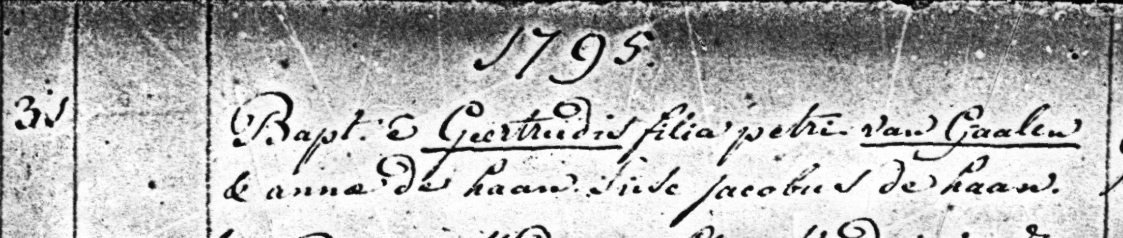 1795.
3is
Bapt. e Geertrudis filia petri van Gaalen
& annæ de haan. Susc jacobus de haan.